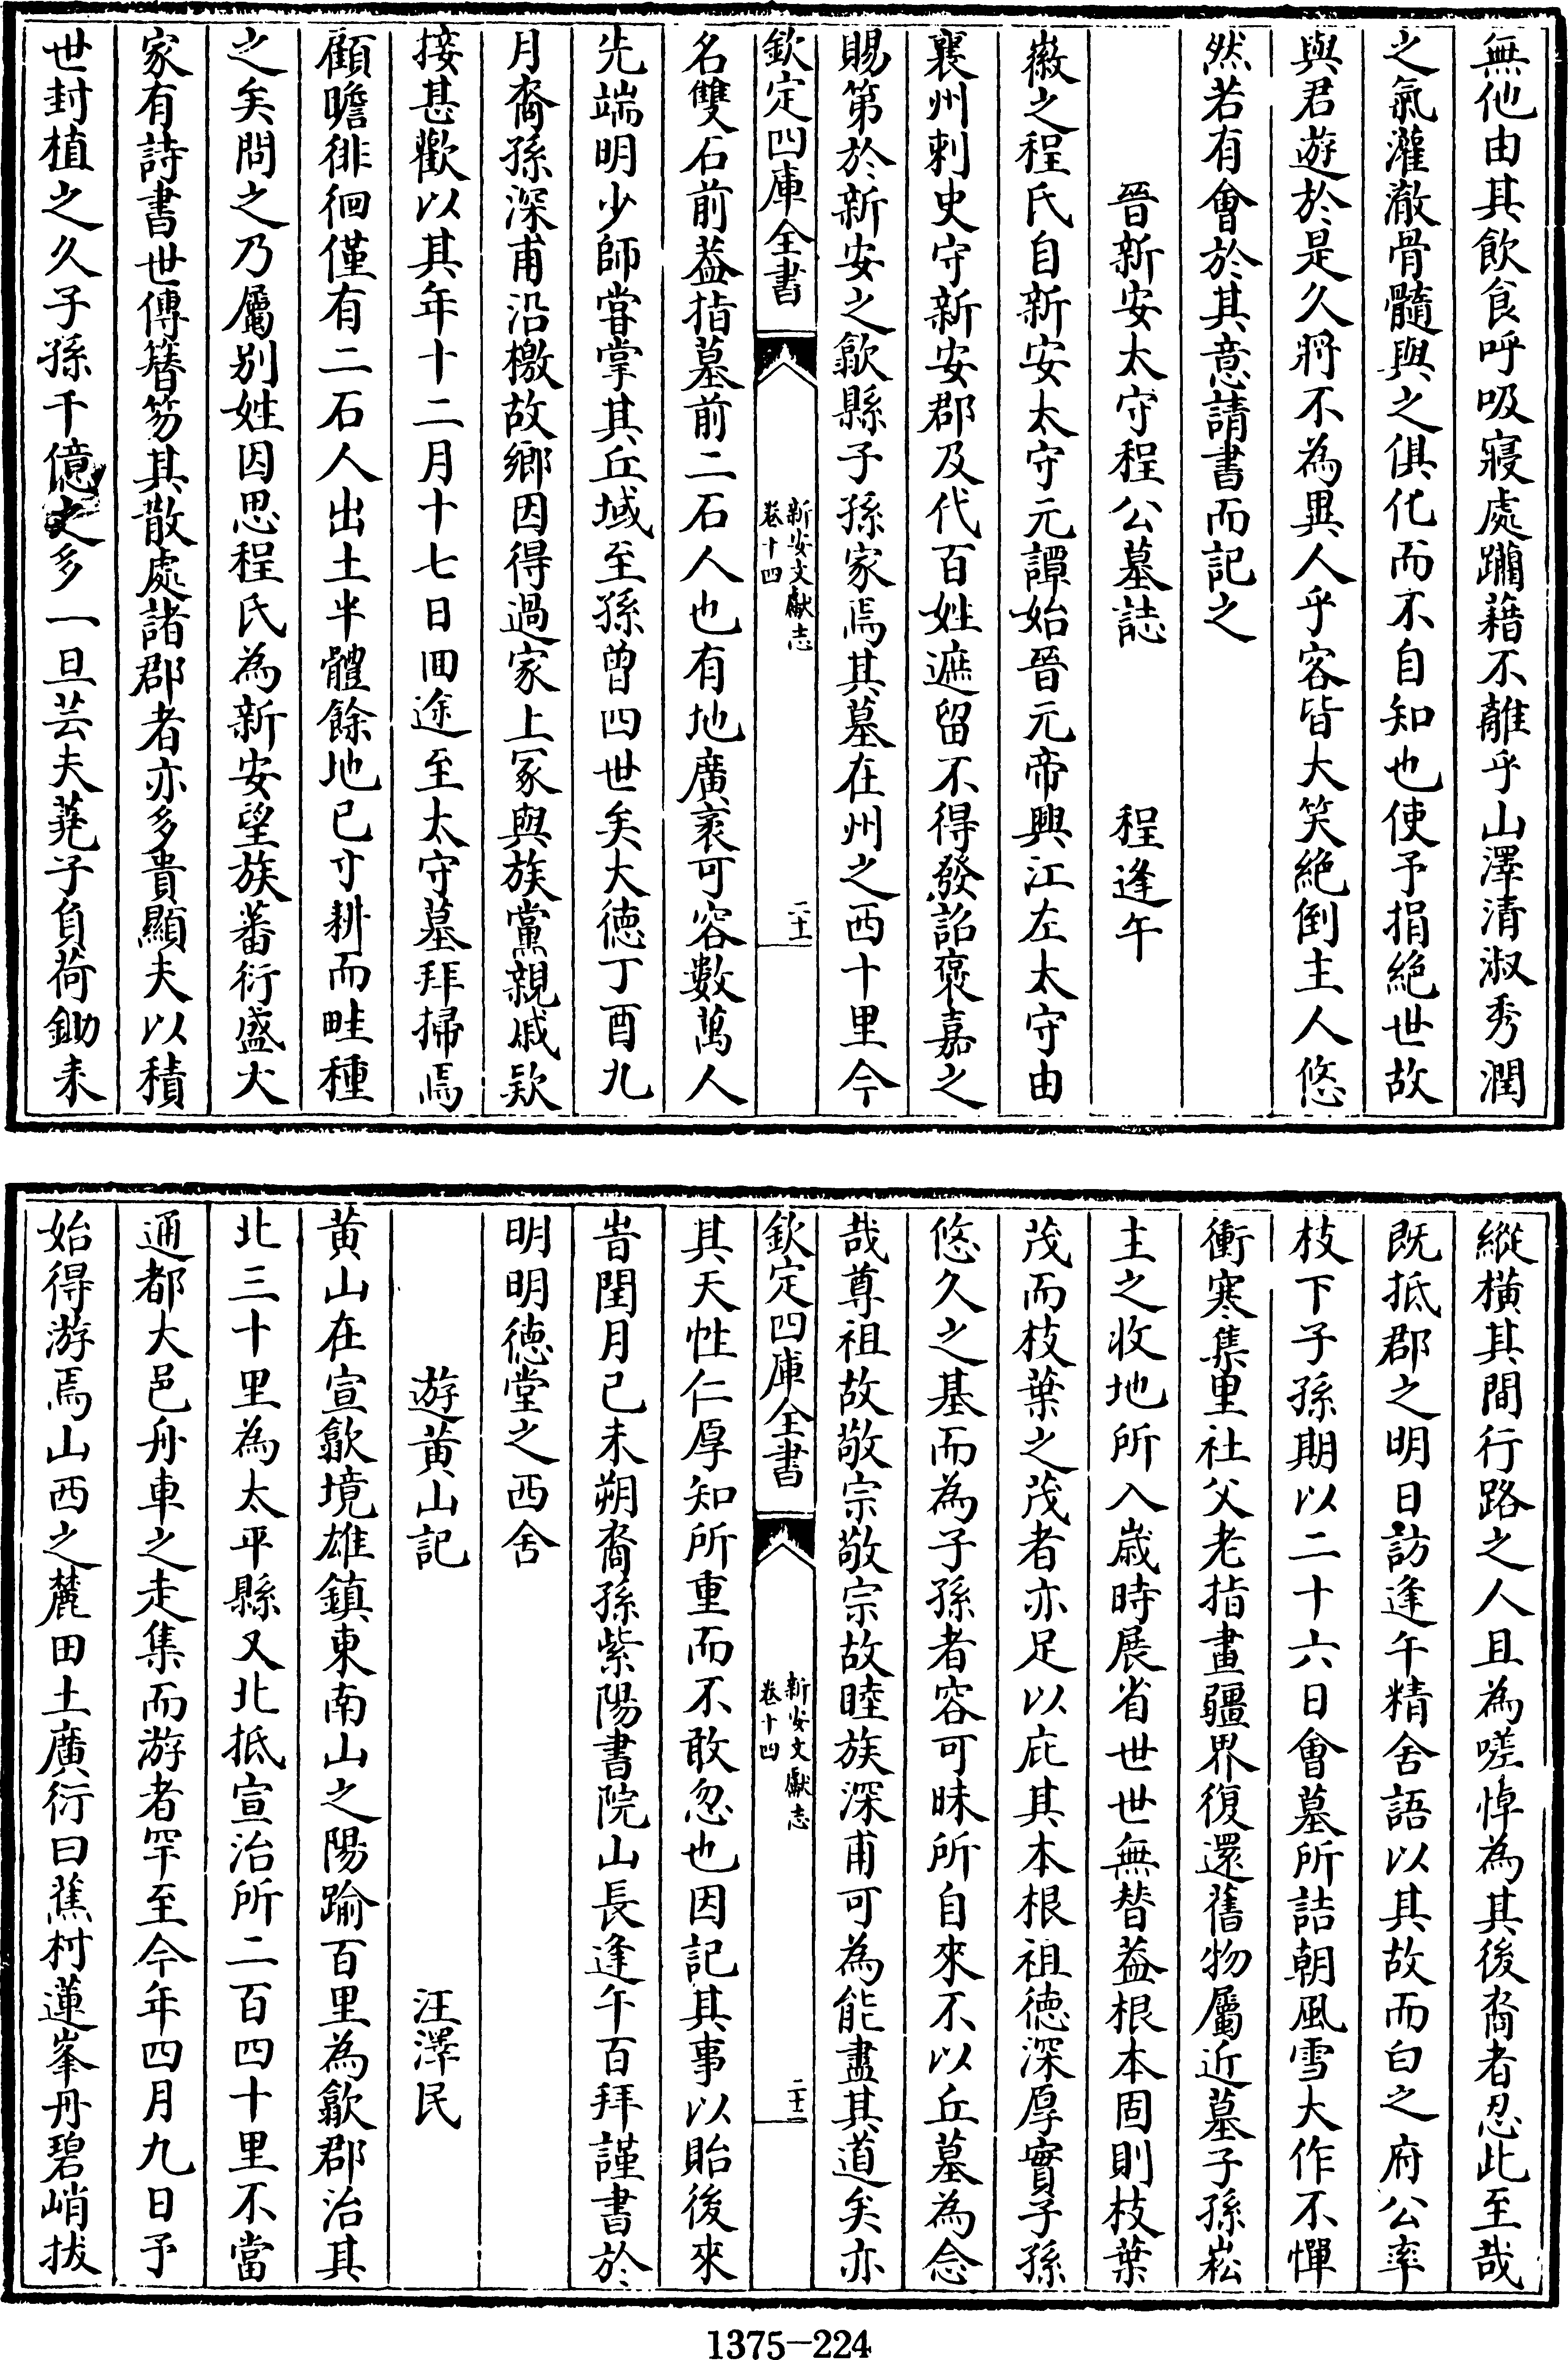 無他由其飲食呼吸寢處躪藉不離乎山澤清淑秀潤
之氣灌澈骨髓與之俱化而不自知也使予捐絶世故
與君遊於是久將不為異人乎容皆大笑絶倒主人悠
然若有會於其意請書而記之
晉新安太守程公墓誌　程逢午
徽之程氏自新安太守元譚始晉元帝興江左太守由
襄州刺史守新安郡及代百姓遮留不得發詔褒嘉之
賜第於新安之歙縣子孫家焉其墓在州之西十里今
欽定四庫全書
新安文獻志
卷十四
二十一
名雙石前葢指墓前二石人也有地廣袤可容數萬人
先端明少師嘗掌其丘域至孫曾四世矣大徳丁酉九
月裔孫深甫沿檄故鄉因得過家上冢與族黨親戚欵
接甚歡以其年十二月十七日囬途至太守墓拜掃焉
顧瞻徘徊僅有二石人出土半體餘地已寸耕而畦種
之矣問之乃屬别姓因思程氏為新安望族蕃衍盛大
家有詩書世傳簪笏其散處諸郡者亦多貴顯夫以積
世封植之久子孫千億之多一旦芸夫蕘子負荷鋤耒
縱横其間行路之人且為嗟悼為其後裔者忍此至哉
既抵郡之明日訪逢午精舍語以其故而白之府公率
枝下子孫期以二十六日會墓所詰朝風雪大作不憚
衝寒集里社父老指畫疆界復還舊物屬近墓子孫崧
主之收地所入歳時展省世世無替葢根本固則枝葉
茂而枝葉之茂者亦足以庇其本根祖徳深厚實子孫
悠久之基而為子孫者容可昧所自來不以丘墓為念
哉尊祖故敬宗敬宗故睦族深甫可為能盡其道矣亦
欽定四庫全書
新安文獻志
卷十四
二十二
其天性仁厚知所重而不敢忽也因記其事以貽後來
旹閏月己未朔裔孫紫陽書院山長逢午百拜謹書於
明明徳堂之西舍
遊黄山記　汪澤民
黄山在宣歙境雄鎮東南山之陽踰百里為歙郡治其
北三十里為太平縣又北抵宣治所二百四十里不當
通都大邑舟車之走集而游者罕至今年四月九日予
始得游焉山西之麓田土廣衍曰蕉村蓮峯丹碧峭拔
1375-224